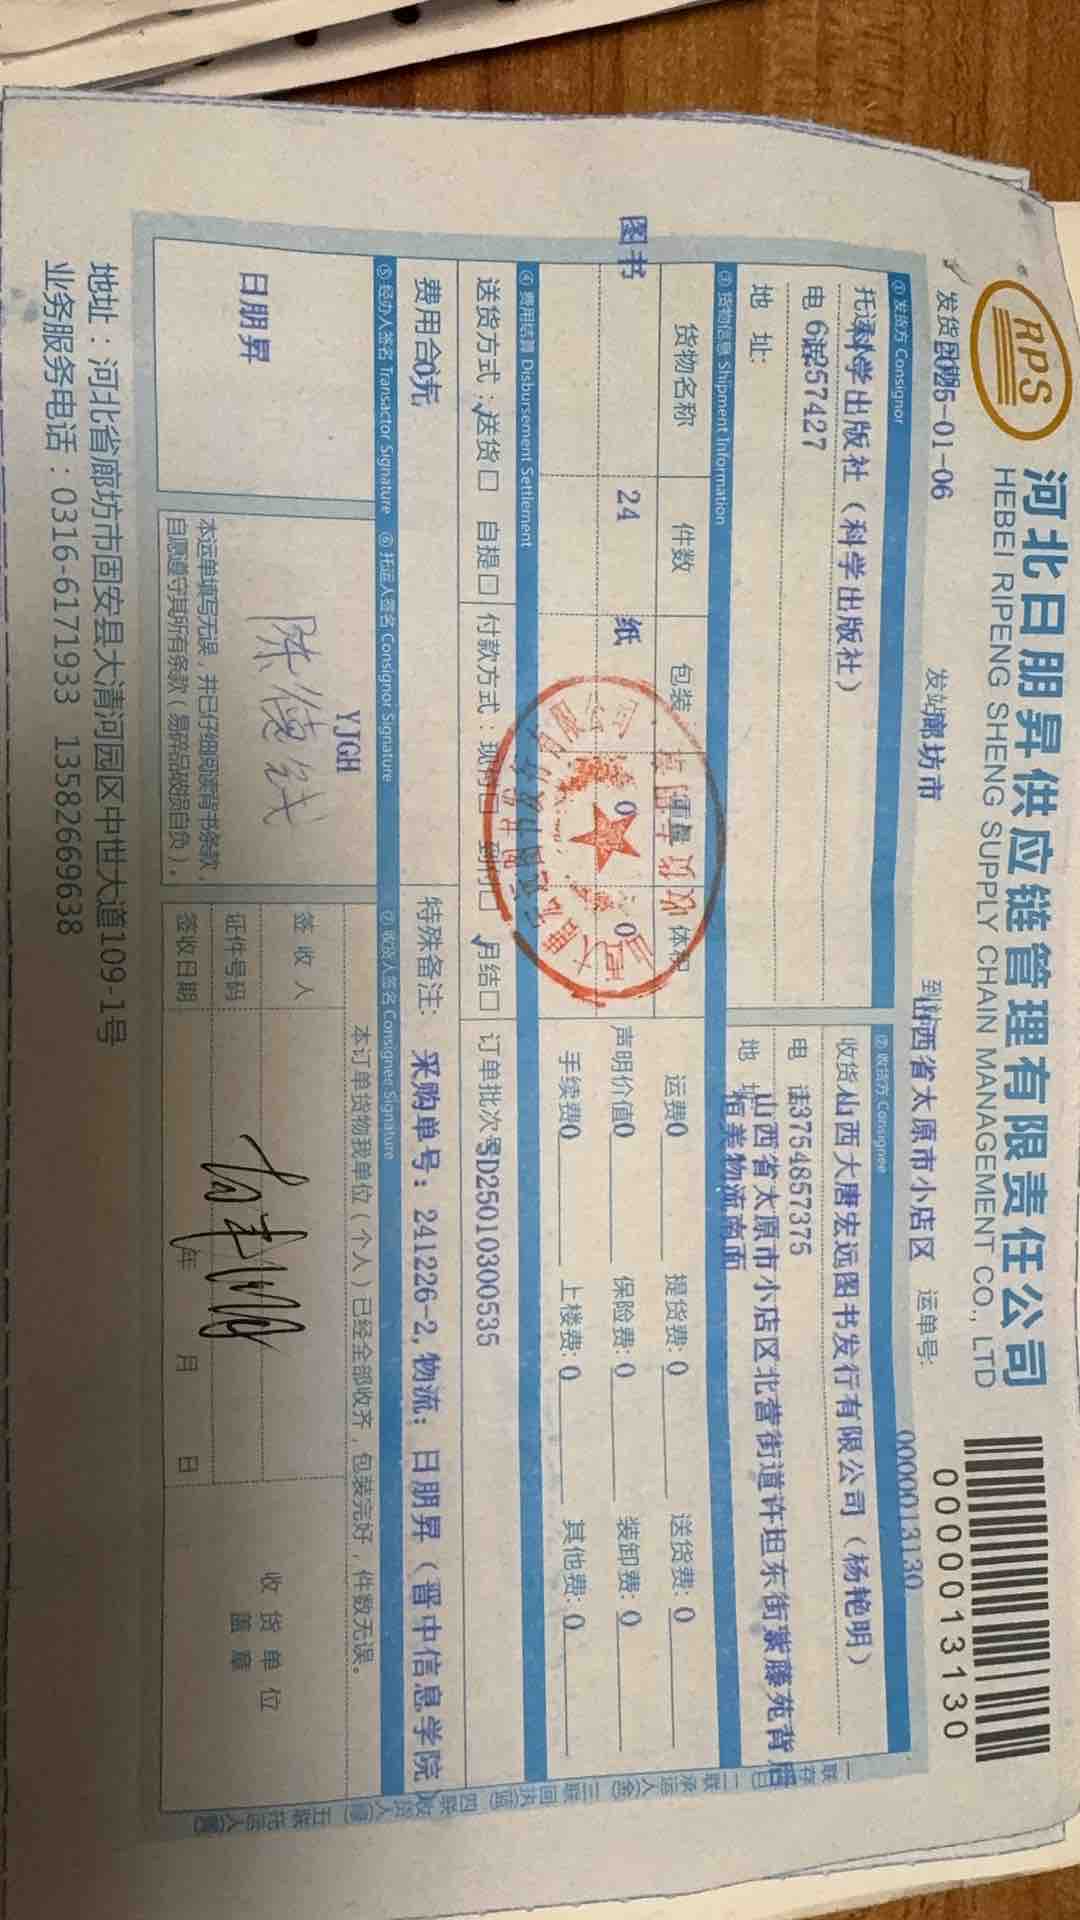 RPS
河北日朋昇供应链管理有限责任公司
HEBEI RIPENG SHENG SUPPLY CHAIN MANAGEMENT CO., LTD
0000013130
发货日期2025-01-06 发站廊坊市 到站山西省太原市小店区 运单号: 0000013130
① 发货方 Consignor ② 收货方 Consignee
托运科学出版社（科学出版社） 收货山西大唐宏远图书发行有限公司（杨艳明）
电 话 57427 电 话 3754857375
地 址: 地 址 山西省太原市小店区北营街道许坦东街紫藤苑背后
恒美物流南面
③ 货物信息 Shipment Information
货物名称 件数 包装 重量 体积 运费0 提货费: 0 送货费: 0
图书 24 纸 0 0 声明价值0 保险费: 0 装卸费: 0
手续费0 上楼费: 0 其他费: 0
④ 费用结算 Disbursement Settlement
送货方式: 送货 自提 付款方式: 现付 到付 月结 订单批次号SD250103000535
费用合0元 特殊备注: 采购单号: 241226-2, 物流: 日朋昇（晋中信息学院
⑤ 经办人签名 Transactor Signature ⑥ 托运人签名 Consignor Signature ⑦ 收货人签名 Consignee Signature
日朋昇 YJGH 本订单货物我单位(个人)已经全部收齐,包装完好,件数无误。
签收人
证件号码
签收日期 年 月 日
收货单位
盖章
本运单填写无误,并已仔细阅读背书条款,
自愿遵守其所有条款(易碎品破损自负)。
地址:河北省廊坊市固安县大清河园区中世大道109-1号
业务服务电话:0316-6171933 13582669638